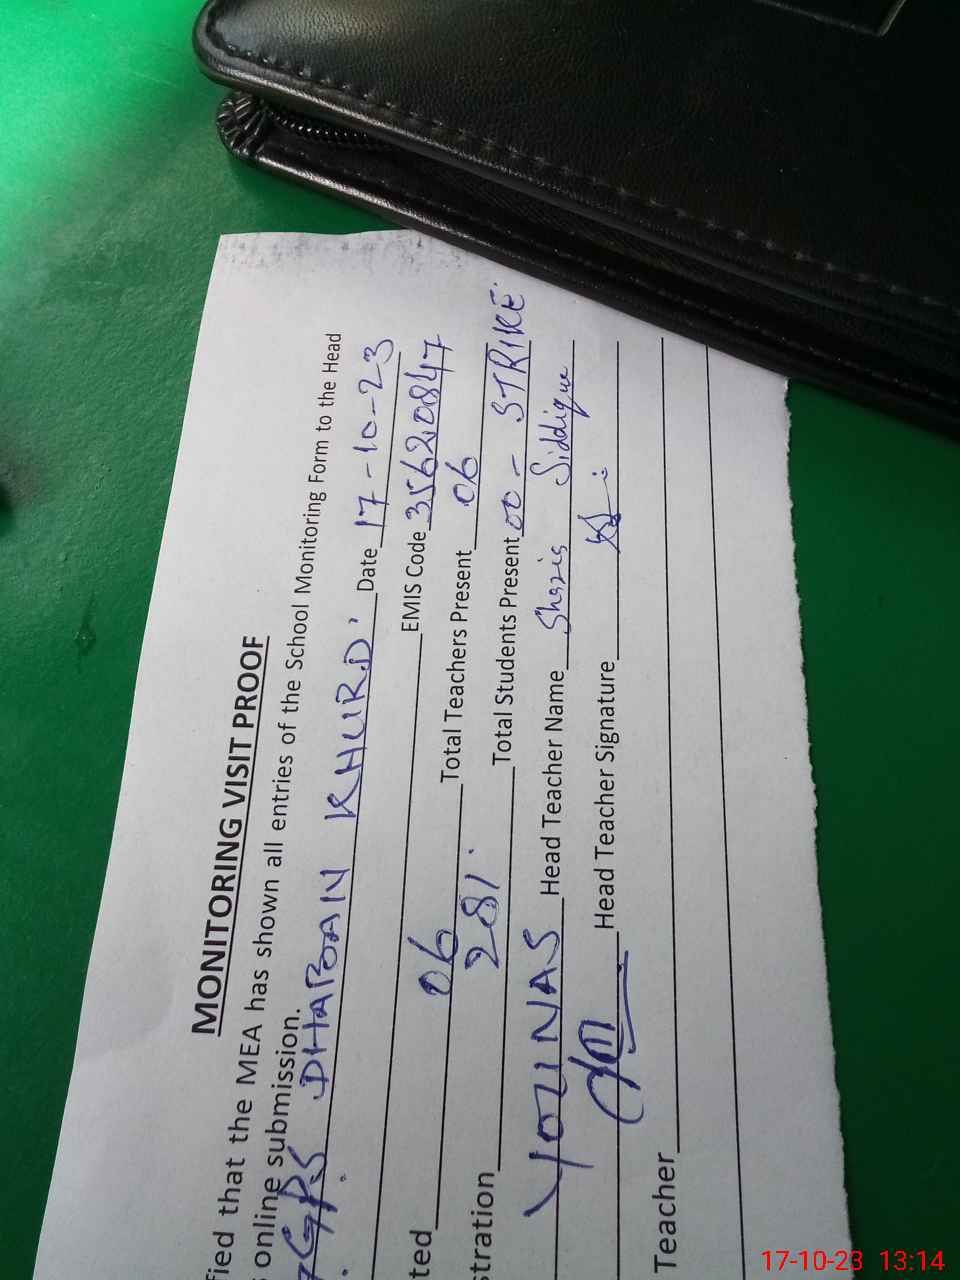 MONITORING VISIT PROOF
fied that the MEA has shown all entries of the School Monitoring Form to the Head
online submission.
GPS DHABAN KHURD. Date 17-10-23
EMIS Code 35620847
ted 06 Total Teachers Present 06
stration 281. Total Students Present 00 - STRIKE
YOUNAS Head Teacher Name Siddique
Head Teacher Signature
Teacher
17-10-23 13:14